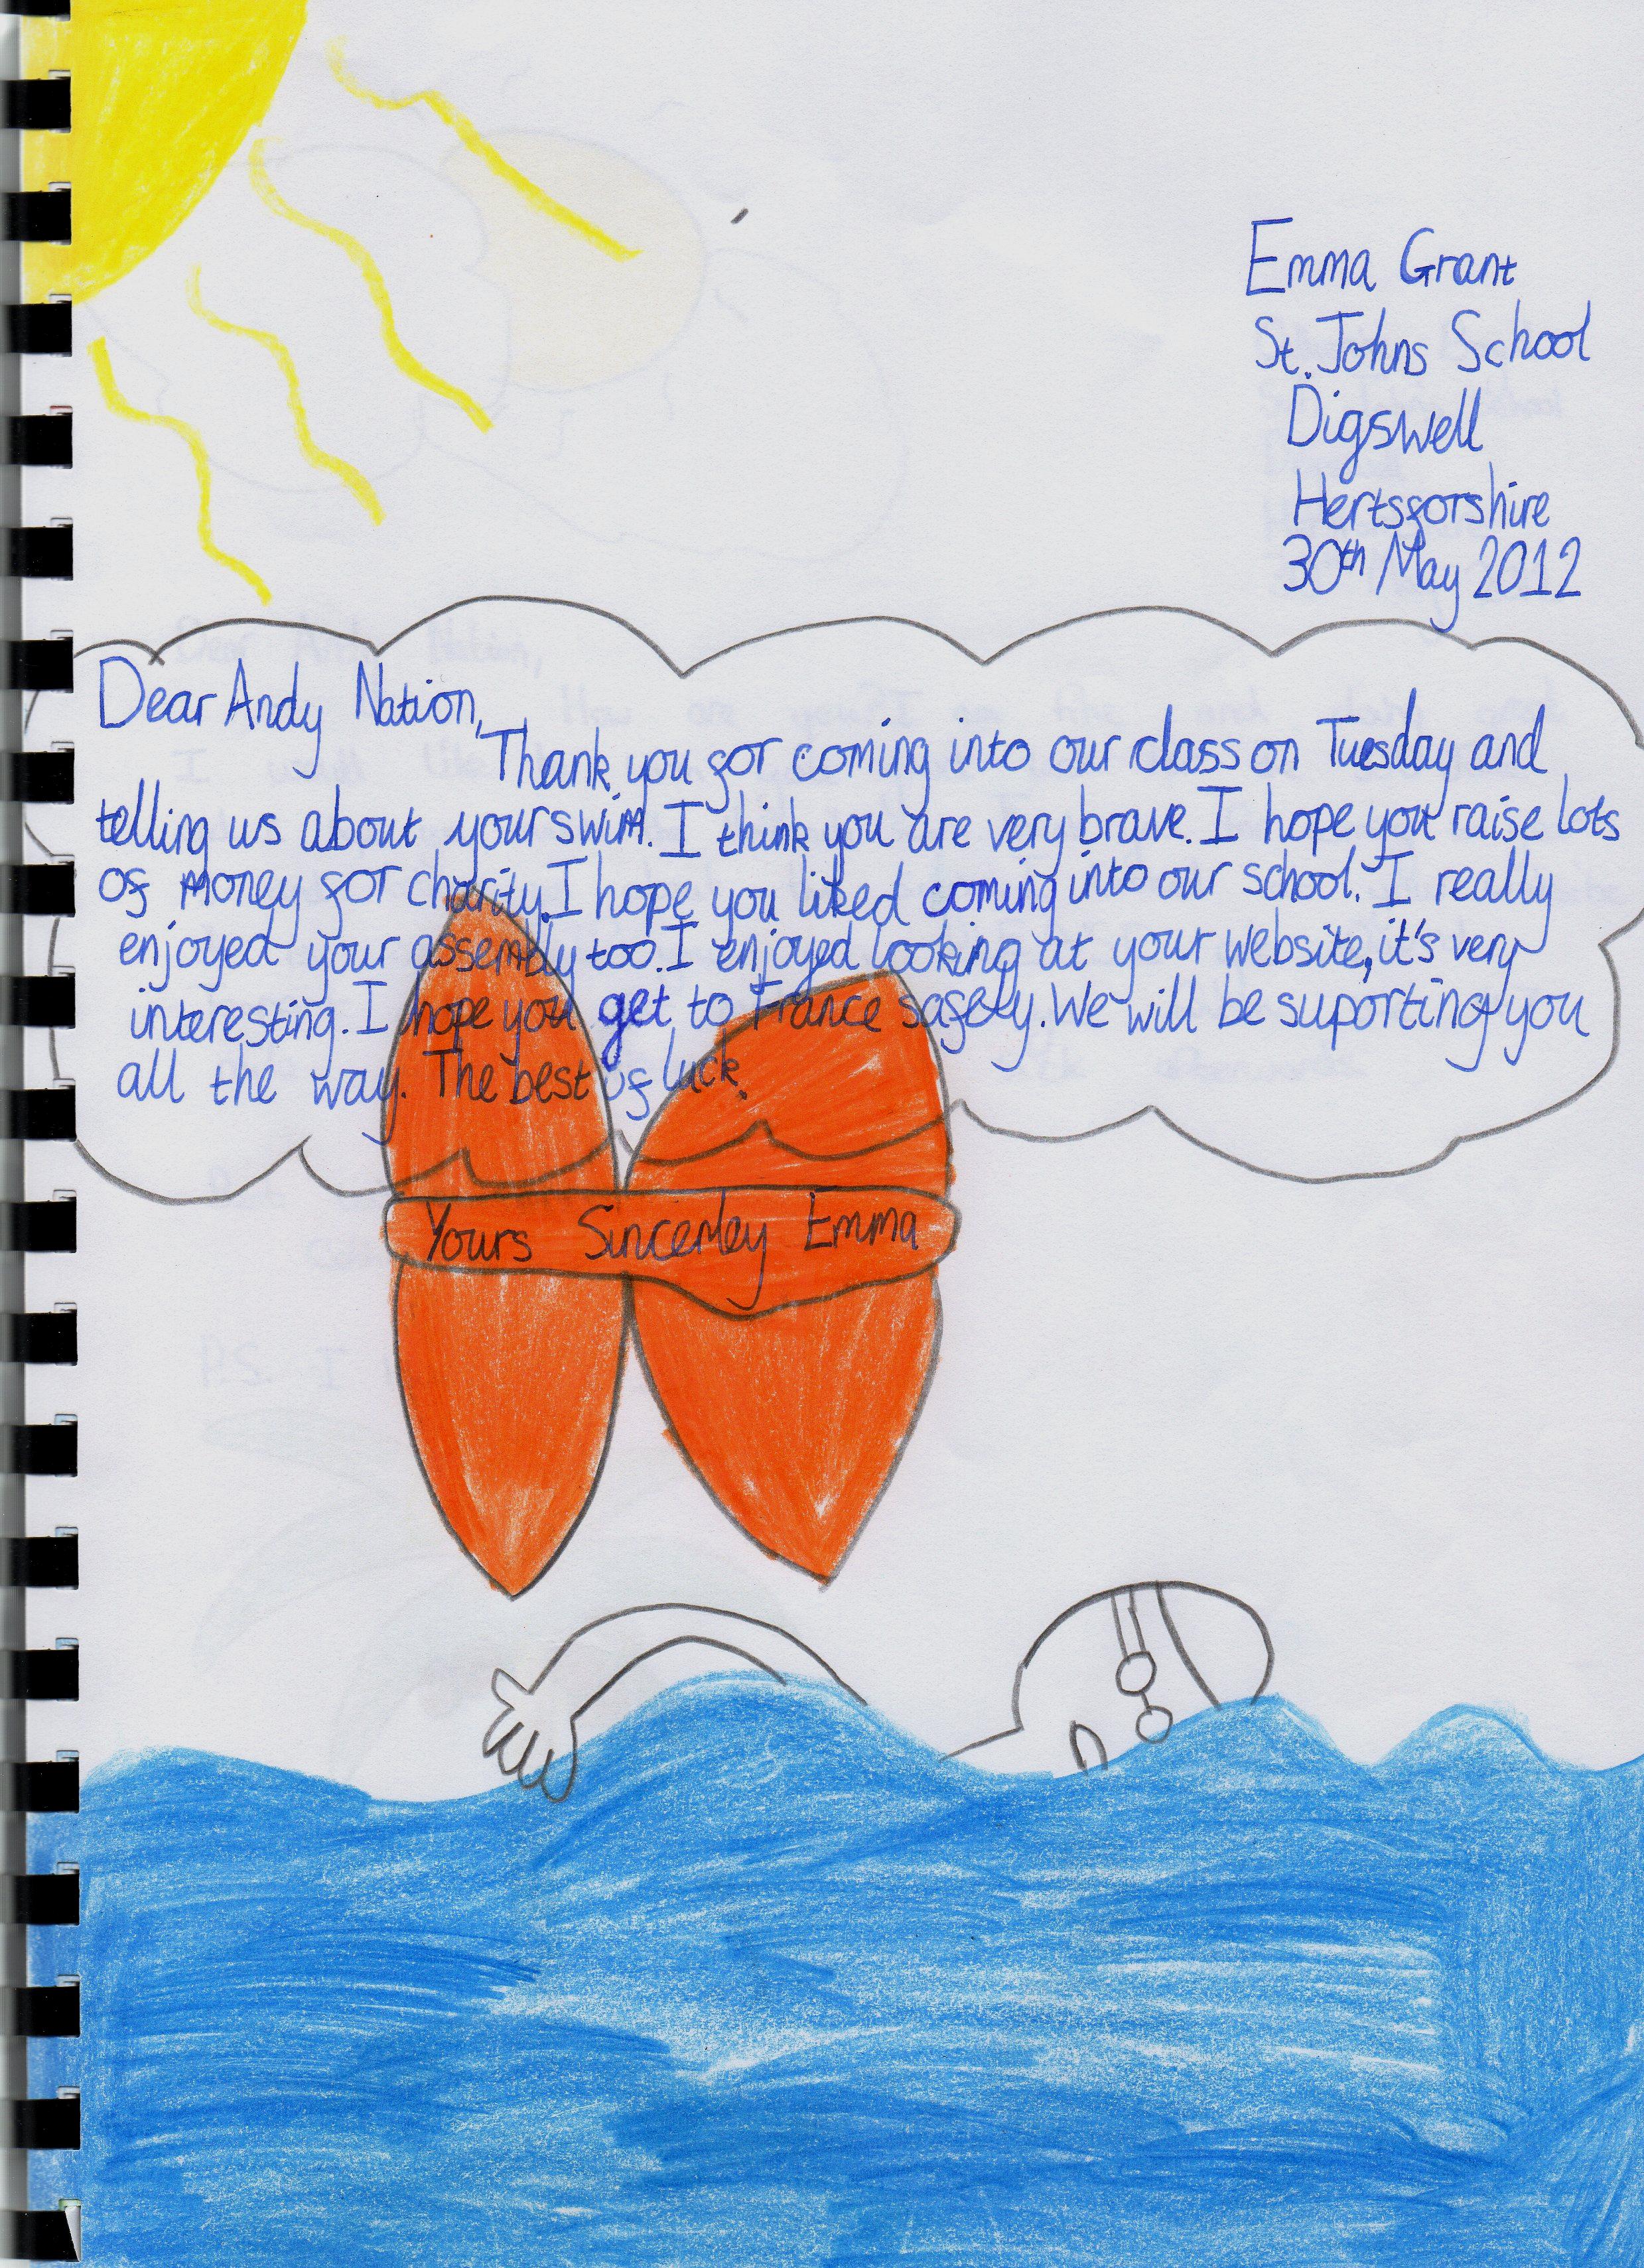 Emma Grant
St. Johns School
Digswell
Hertsforshire
30th May 2012
Dear Andy Nation,
Thank you for coming into our class on Tuesday and
telling us about your swim. I think you are very brave. I hope you raise lots
of money for charity. I hope you liked coming into our school. I really
enjoyed your assembly too. I enjoyed looking at your website, it's very
interesting. I hope you get to France safely. We will be suporting you
all the way. The best of luck.
Yours Sincerley Emma